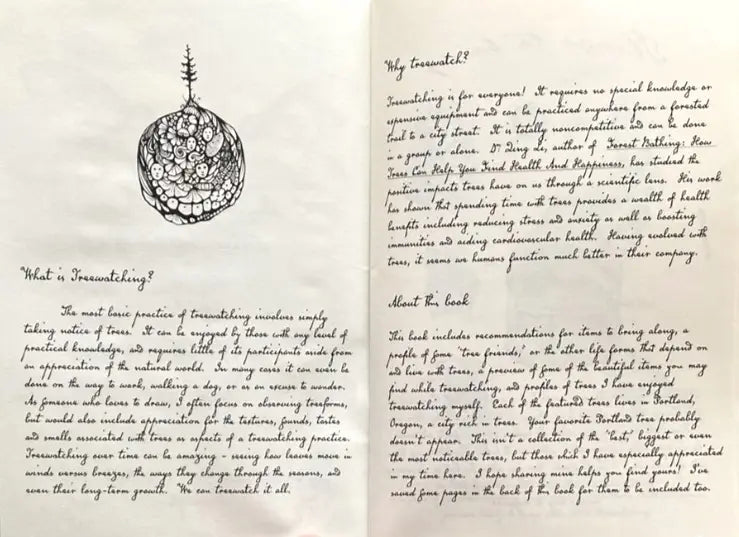 What is Treewatching?
The most basic practice of treewatching involves simply
taking notice of trees. It can be enjoyed by those with any level of
practical knowledge, and requires little of its participants aside from
an appreciation of the natural world. In many cases it can even be
done on the way to work, walking a dog, or as an excuse to wander.
As someone who loves to draw, I often focus on observing treeforms,
but would also include appreciation for the textures, sounds, tastes
and smells associated with trees as aspects of a treewatching practice.
Treewatching over time can be amazing - seeing how leaves move in
winds versus breezes, the ways they change through the seasons, and
even their long-term growth. We can treewatch it all.
Why treewatch?
Treewatching is for everyone! It requires no special knowledge or
expensive equipment and can be practiced anywhere from a forested
trail to a city street. It is totally noncompetitive and can be done
in a group or alone. Dr Qing Li, author of Forest Bathing: How
Trees Can Help You Find Health And Happiness, has studied the
positive impacts trees have on us through a scientific lens. His work
has shown that spending time with trees provides a wealth of health
benefits including reducing stress and anxiety as well as boosting
immunities and aiding cardiovascular health. Having evolved with
trees, it seems we humans function much better in their company.
About this book
This book includes recommendations for items to bring along, a
profile of some "tree friends," or the other life forms that depend on
and live with trees, a preview of some of the beautiful items you may
find while treewatching, and profiles of trees I have enjoyed
treewatching myself. Each of the featured trees lives in Portland,
Oregon, a city rich in trees. Your favorite Portland tree probably
doesn't appear. This isn't a collection of the "best," biggest or even
the most noticeable trees, but those which I have especially appreciated
in my time here. I hope sharing mine helps you find yours! I've
saved some pages in the back of this book for them to be included too.